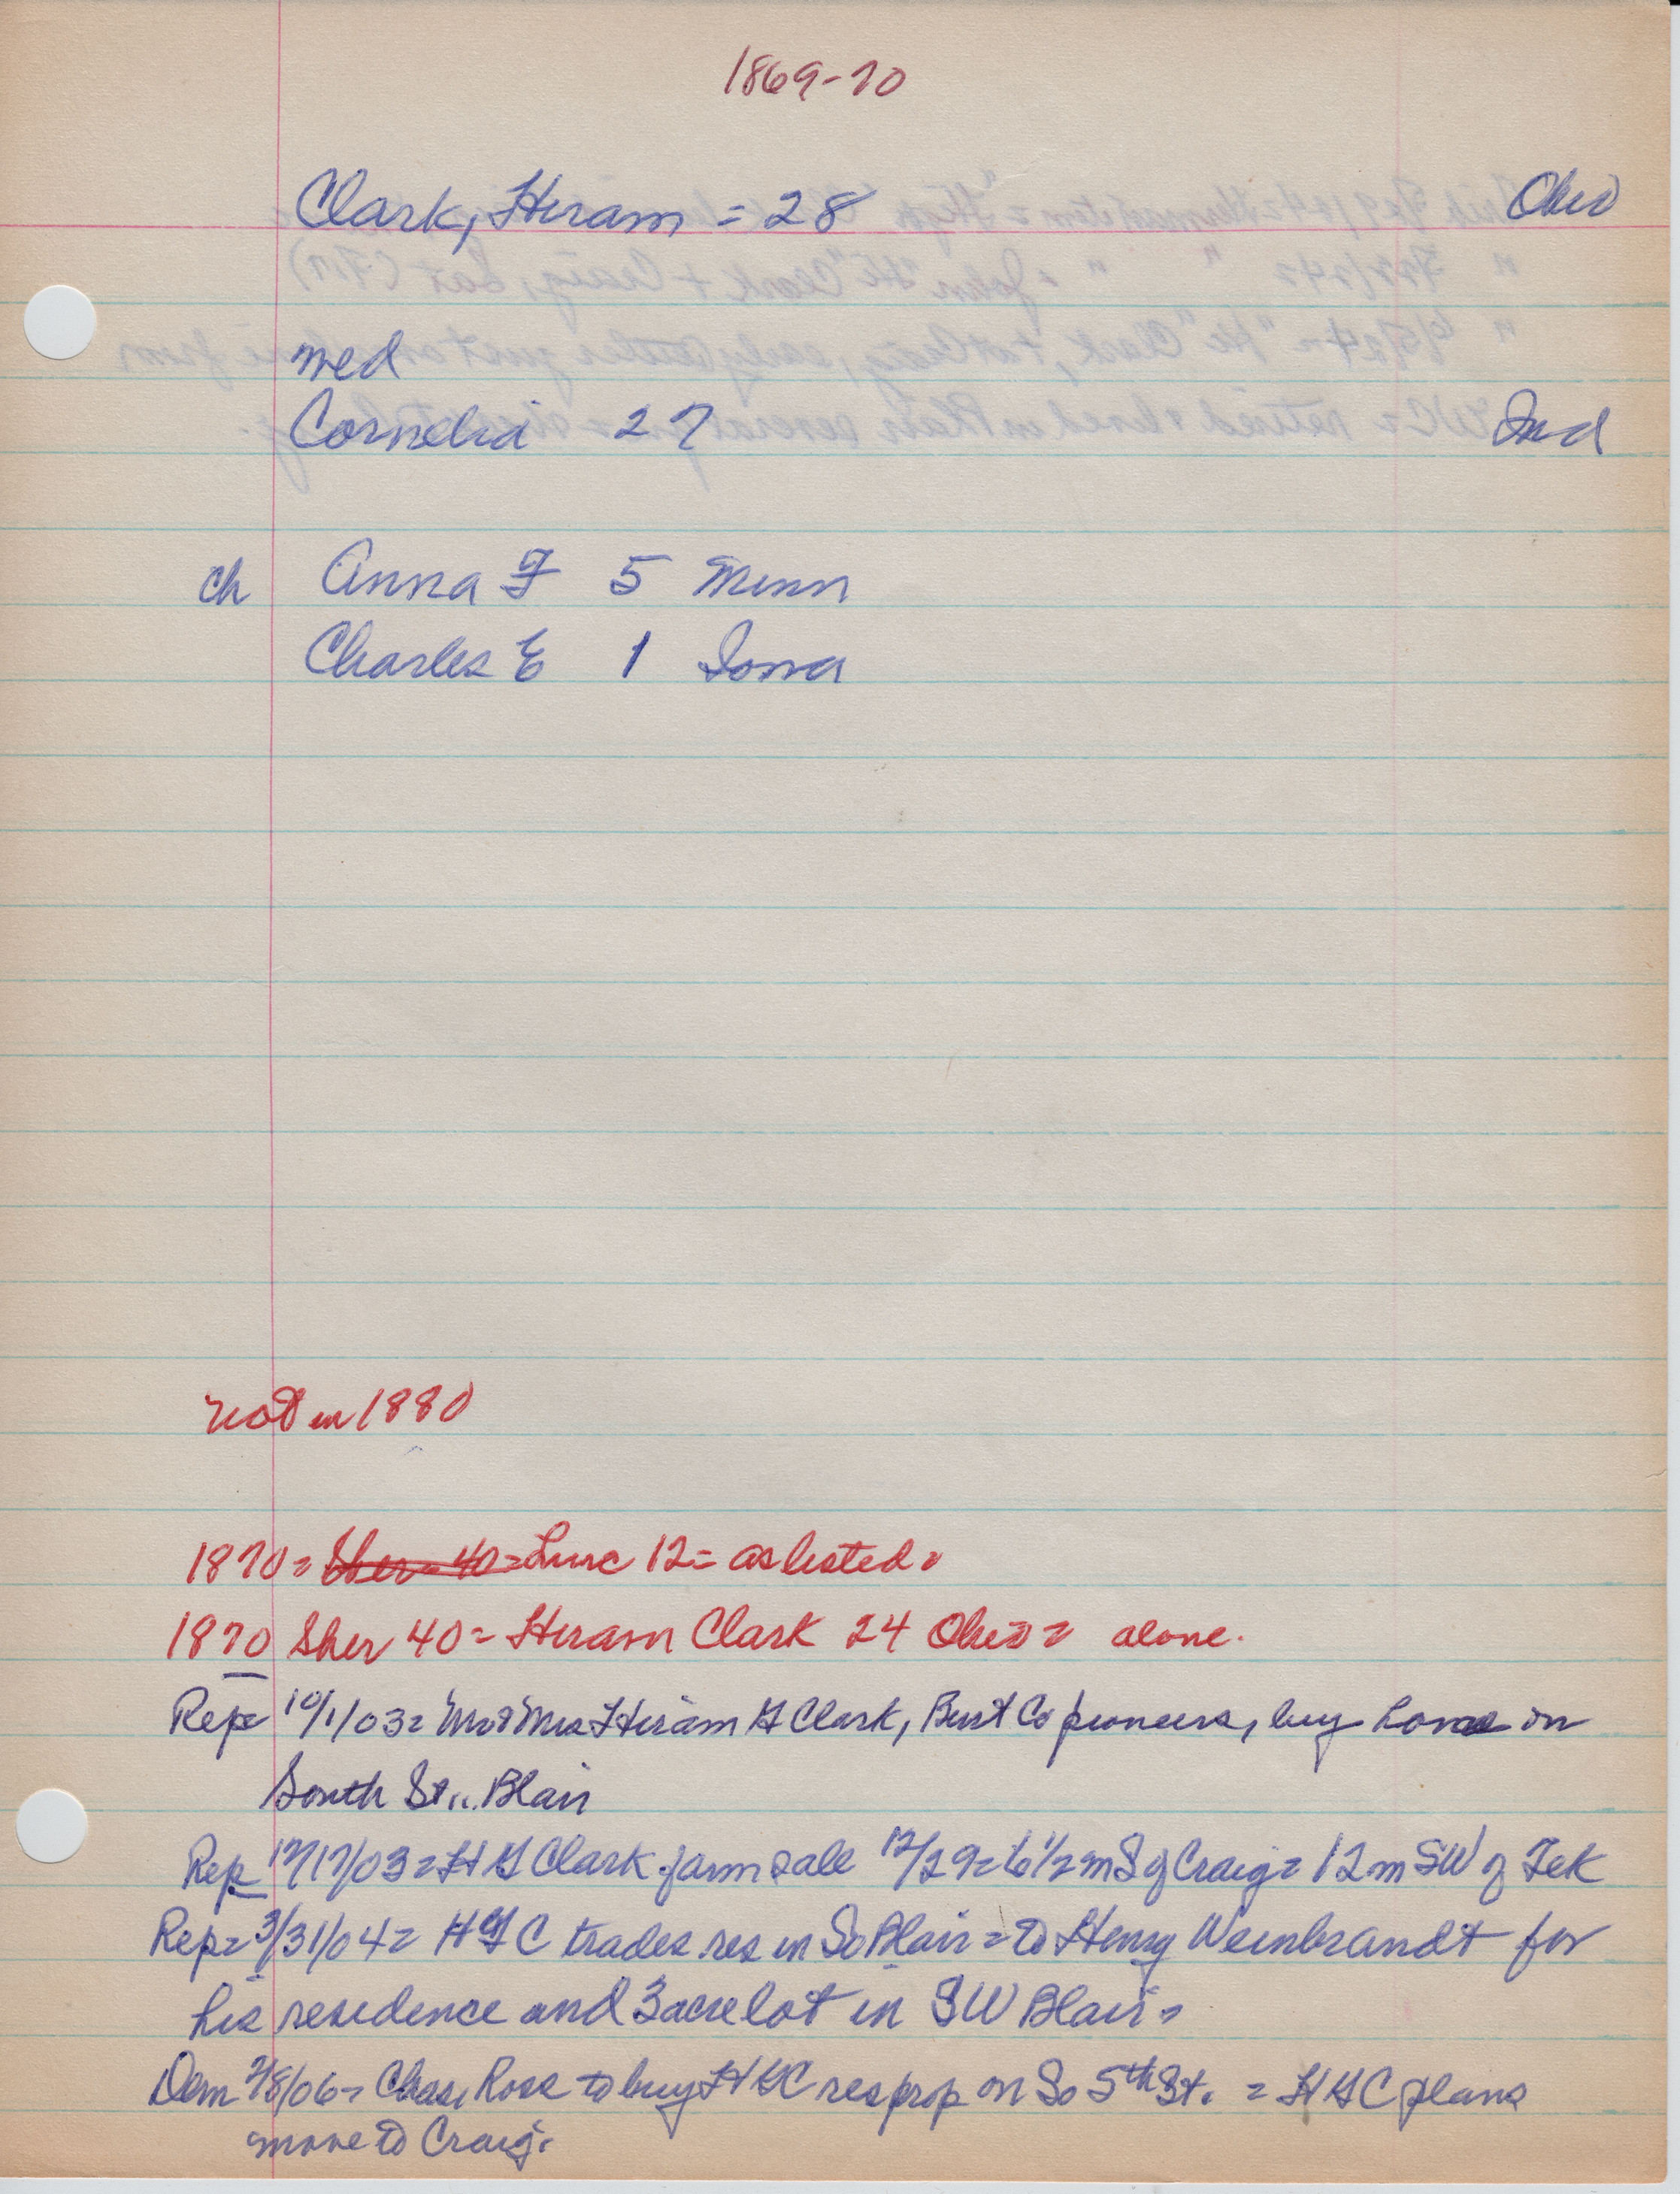 1869-70
Clark, Hiram = 28 Ohio
wed
Cornelia 27 Ind
ch Anna F 5 Minn
Charles E 1 Iowa
not in 1880
1870 = Sher = 40 = Linc 12 = as listed =
1870 Sher 40 = Hiram Clark 24 Ohio = alone.
Rep 10/1/03 = Mr & Mrs Hiram G Clark, Burt Co pioneers, buy home on
South St., Blair
Rep 12/17/03 = H G Clark farm sale 12/29 = 6 1/2 m S of Craig = 12 m SW of Tek
Rep = 3/31/04 = H G C trades res in So Blair = to Henry Weinbrandt for
his residence and 3 acre lot in SW Blair =
Dem /8/06 = Chas. Ross to buy H G C res prop on So 5th St. = H G C plans
move to Craig.